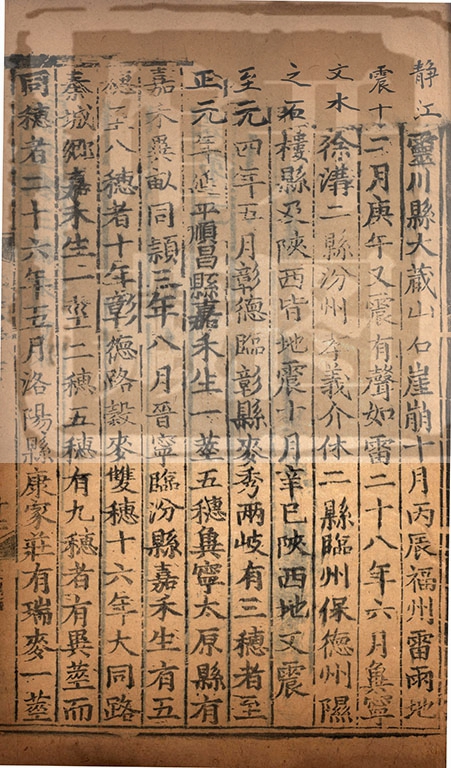 靜江靈川縣大藏山石崖崩十月丙辰福州雷雨地
震十二月庚午又震有聲如雷二十八年六月兾寧
文水徐溝二縣汾州孝義介休二縣臨州保德州隰
之石樓縣及陝西皆地震十月辛巳陝西地又震
至元四年五月彰德臨彰縣麥秀兩岐有三穗者至
正元年延平順昌縣嘉禾生一莖五穗兾寧太原縣有
嘉禾異畝同頴三年八月晉寧臨汾縣嘉禾生有五
穗至八穗者十年彰德路穀麥雙穗十六年大同路
秦城鄉嘉禾生一莖二穗五穗有九穗者有異莖而
同穗者二十六年五月洛陽縣康家莊有瑞麥一莖